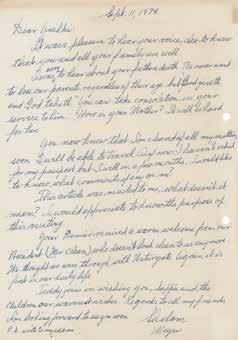 Sept. 11, 1974
Dear Yualke
It was a pleasure to hear your voice, also to know
that you and all your family are well.
I was sorry to hear about your fathers death. We never want
to lose our parents regardless of their age but God giveth
and God taketh. You can take consolation in your
service to him. How is your Mother? It will be hard
for her.
You now know that I'm cleared of all my matters
soon I will be able to travel. As of now I haven't asked
for my passport but I will in a few months. I would like
to know, what comments if any on me?
This article was mailed to me, what does it
mean? I would appreciate to know the purpose of
this meeting.
Your Premier received a warm welcome from our
President (Mr Clean) who doesn't look clean to us anymore
We thought we were through with Watergate again, it is
first in our daily life.
Teddy joins in wishing you, and the
children our warmest wishes. Regards to all my friends
I'm looking forward to seeing you soon
Sholom
Meyer
P.S. write to me soon